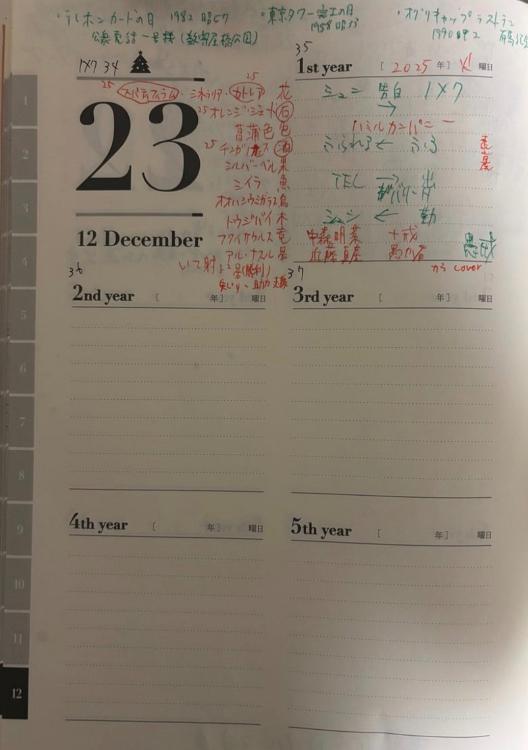 ・テレホンカードの日 1982 昭57
公衆電話一号機(数寄屋橋公園)
・東京タワー完工の日
1958 昭33
・オグリキャップラストラン
1990 平2 有馬記念
1×7 34
25 スパティフィラム ミネラリア・カトレア 花
25
25 オレンジジェード 石
菖蒲色 色
25 チンガノカス 酒
シルバーベル 果
ミイラ 魚
オオハシウミガラス 鳥
トウジバイ 木
フクイサウルス 竜
アル・ナスル 星
いて射手星(勝利)
23
12 December
35
1st year [ 2025 年] 火 曜日
シュン 告白 1×7
→
ハミルカンパニー
ふられる ← ふる
TEL →
シュン ← 勤
中森明菜 十戒
近藤真彦 愚か者
愚戒
から cover
36
2nd year [ 年] 曜日
37
3rd year [ 年] 曜日
4th year [ 年] 曜日
5th year [ 年] 曜日
1
2
3
4
5
6
7
8
9
10
11
12